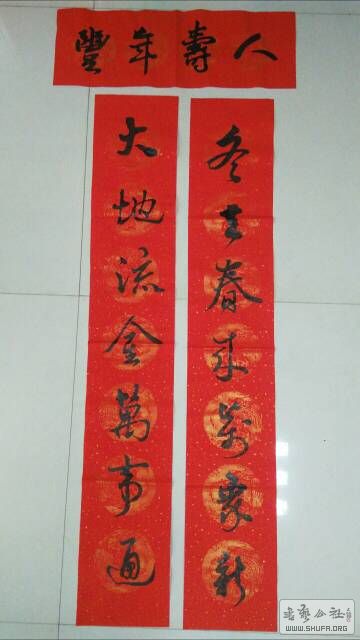 人壽年豐
冬去春来萬象新
大地流金萬事通
WWW.SHUFA.ORG